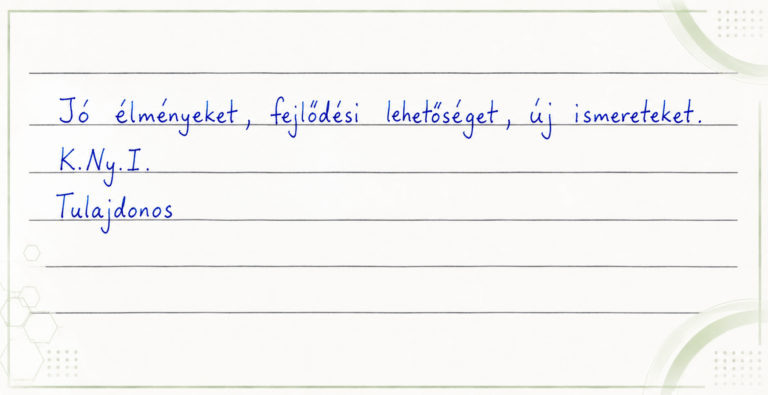 Jó élményeket, fejlődési lehetőséget, új ismereteket.
K.Ny.I.
Tulajdonos